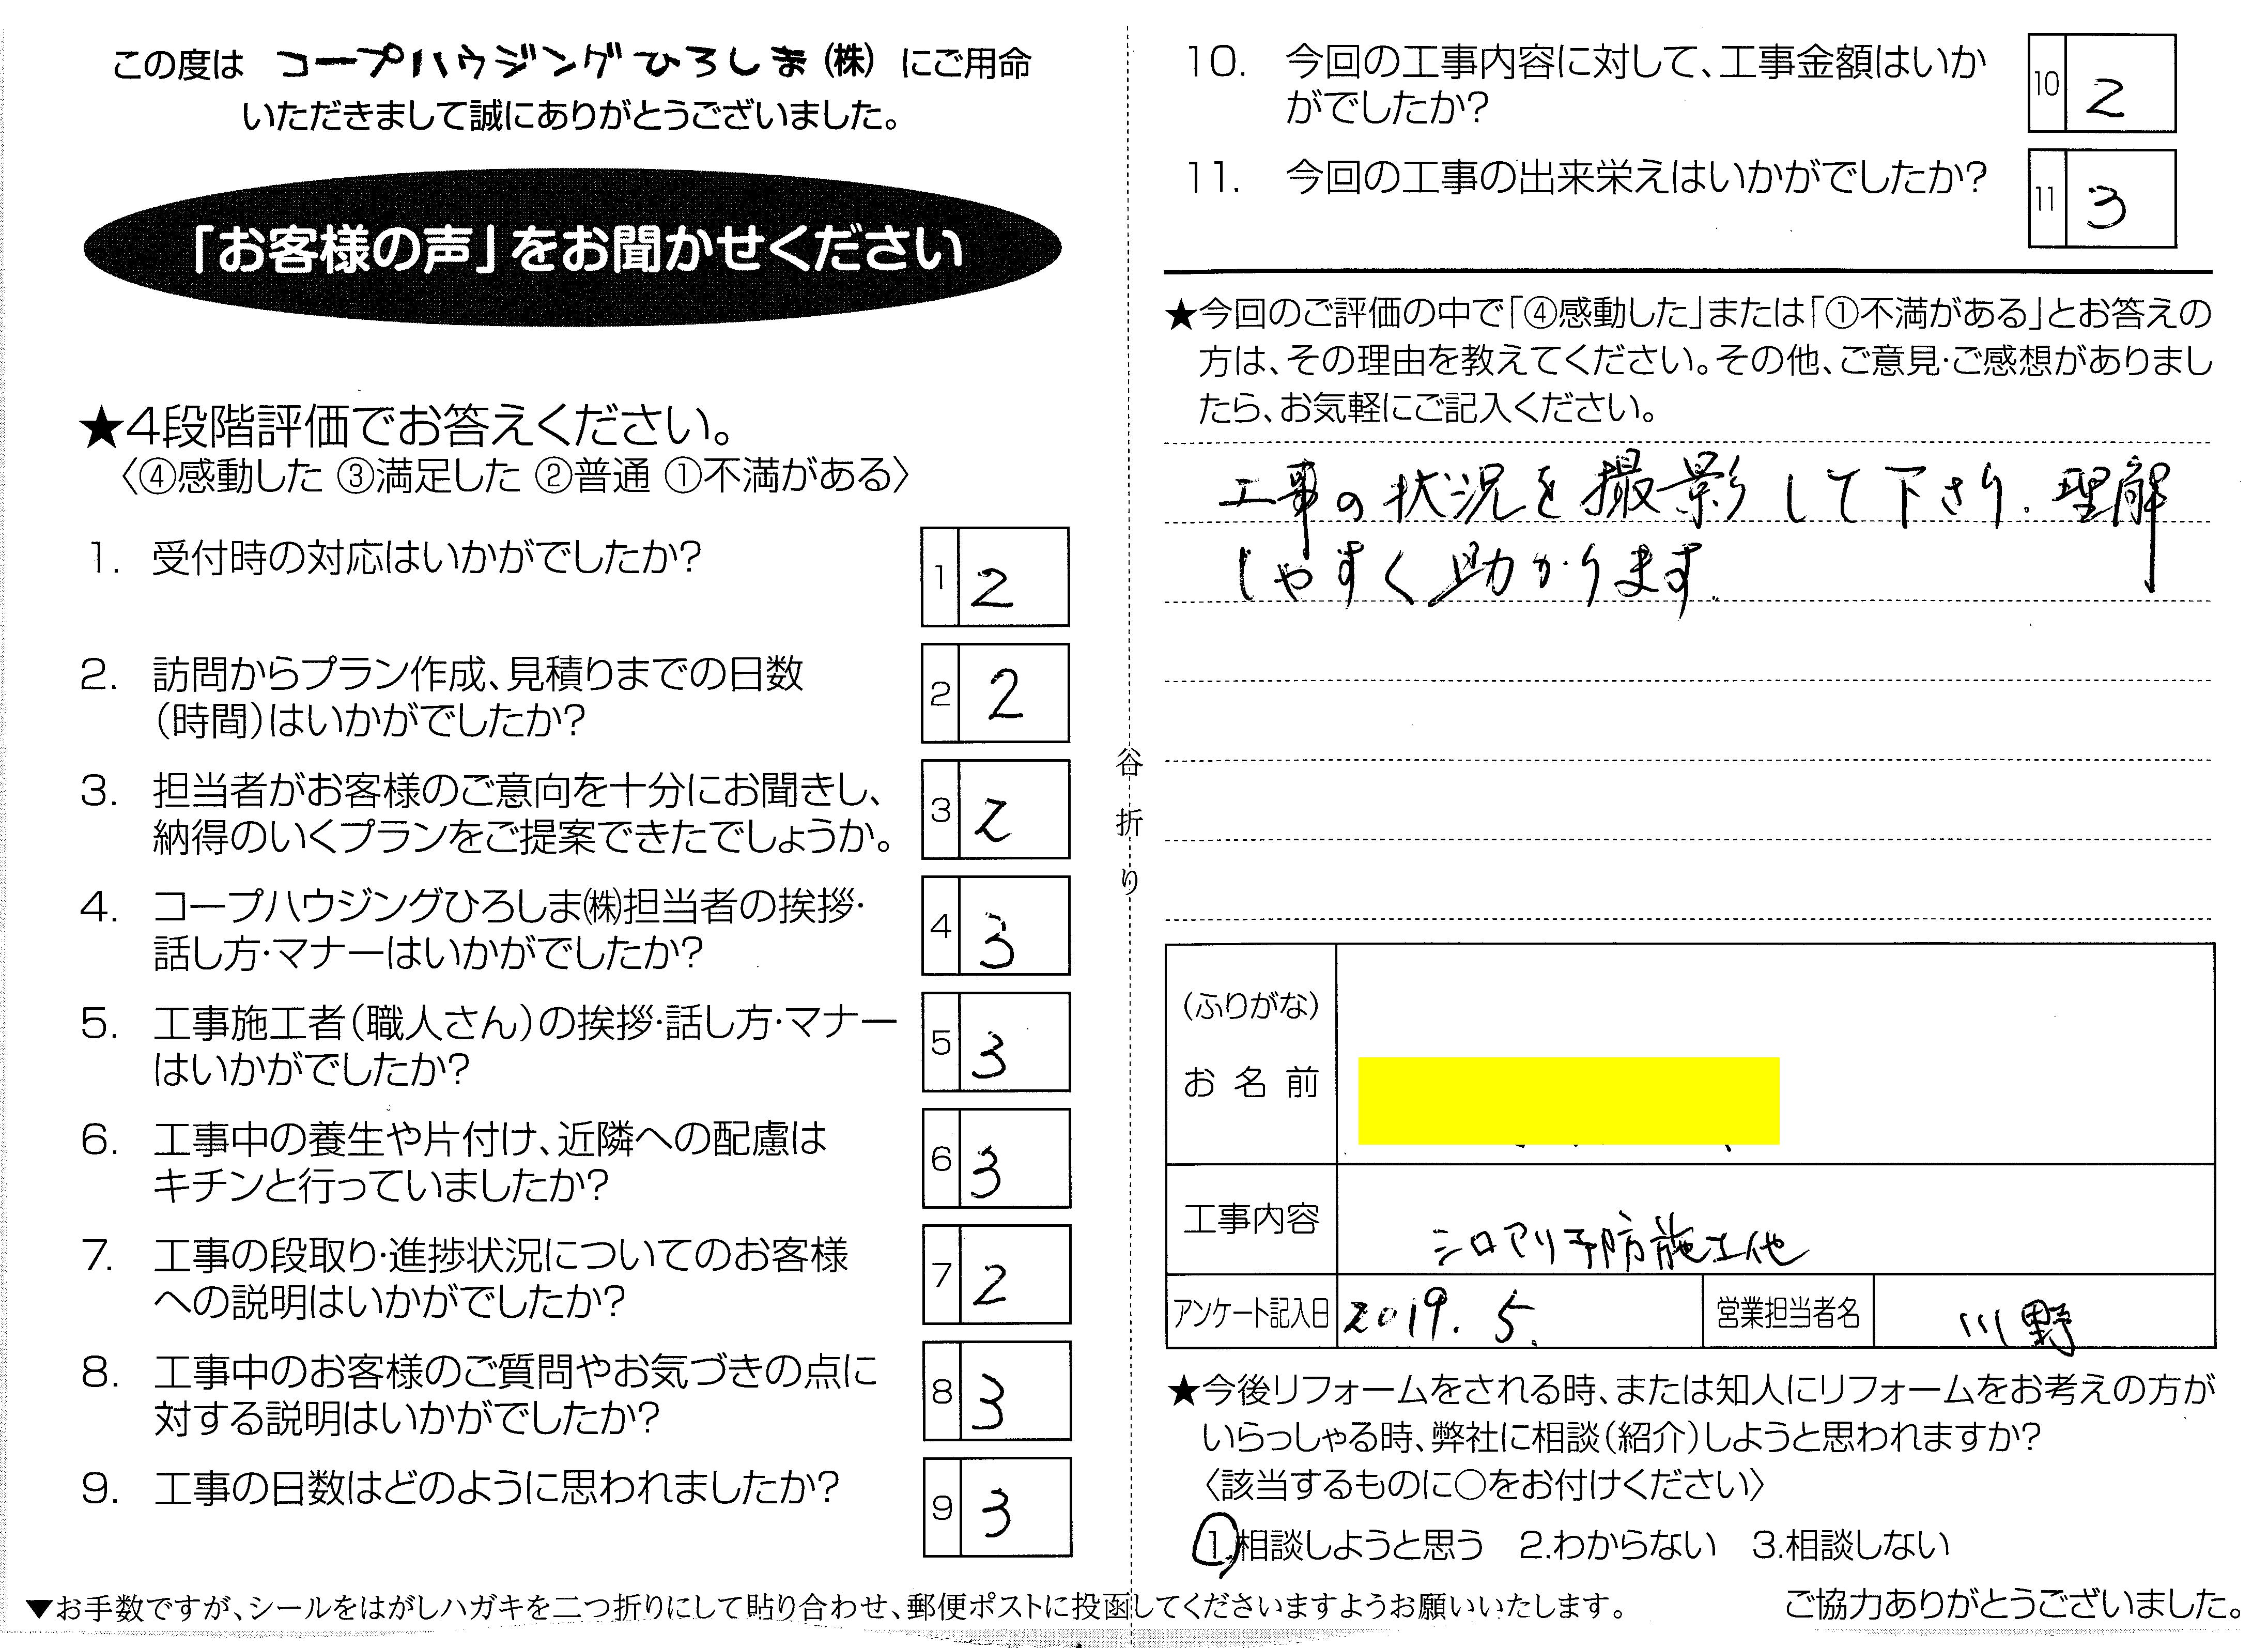 この度は コープハウジングひろしま(株) にご用命
いただきまして誠にありがとうございました。
「お客様の声」をお聞かせください
★4段階評価でお答えください。
〈④感動した ③満足した ②普通 ①不満がある〉
1. 受付時の対応はいかがでしたか?
1 2
2. 訪問からプラン作成、見積りまでの日数
(時間)はいかがでしたか?
2 2
3. 担当者がお客様のご意向を十分にお聞きし、
納得のいくプランをご提案できたでしょうか。
3 2
4. コープハウジングひろしま㈱担当者の挨拶・
話し方・マナーはいかがでしたか?
4 3
5. 工事施工者(職人さん)の挨拶・話し方・マナー
はいかがでしたか?
5 3
6. 工事中の養生や片付け、近隣への配慮は
キチンと行っていましたか?
6 3
7. 工事の段取り・進捗状況についてのお客様
への説明はいかがでしたか?
7 2
8. 工事中のお客様のご質問やお気づきの点に
対する説明はいかがでしたか?
8 3
9. 工事の日数はどのように思われましたか?
9 3
谷折り
10. 今回の工事内容に対して、工事金額はいか
がでしたか?
10 2
11. 今回の工事の出来栄えはいかがでしたか?
11 3
★今回のご評価の中で「④感動した」または「①不満がある」とお答えの
方は、その理由を教えてください。その他、ご意見・ご感想がありまし
たら、お気軽にご記入ください。
工事の状況を撮影して下さり、理解
しやすく助かります.
(ふりがな)
お名前
工事内容 シロアリ予防施工他
アンケート記入日 2019. 5. 営業担当者名 川野
★今後リフォームをされる時、または知人にリフォームをお考えの方が
いらっしゃる時、弊社に相談(紹介)しようと思われますか?
〈該当するものに○をお付けください〉
1.相談しようと思う 2.わからない 3.相談しない
▼お手数ですが、シールをはがしハガキを二つ折りにして貼り合わせ、郵便ポストに投函してくださいますようお願いいたします。
ご協力ありがとうございました。